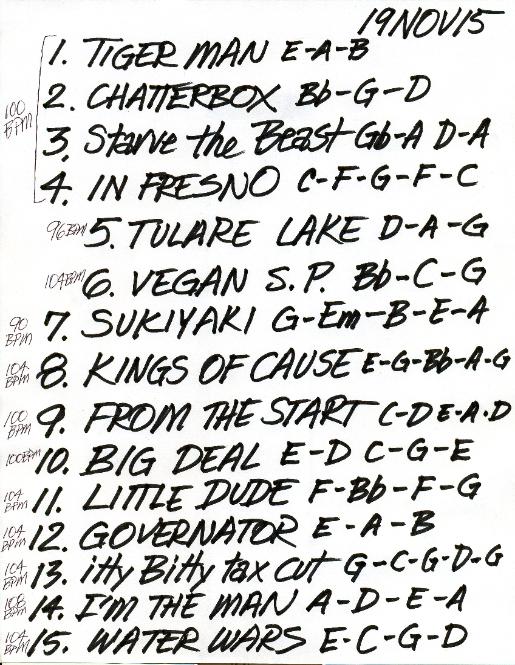 19NOV15
100 BPM
1. TIGER MAN E-A-B
2. CHATTERBOX Bb-G-D
3. Starve the Beast Gb-A D-A
4. IN FRESNO C-F-G-F-C
96BPM 5. TULARE LAKE D-A-G
104BPM 6. VEGAN S.P. Bb-C-G
90 BPM 7. SUKIYAKI G-Em-B-E-A
104 BPM 8. KINGS OF CAUSE E-G-Bb-A-G
100 BPM 9. FROM THE START C-D E-A-D
100BPM 10. BIG DEAL E-D C-G-E
104 BPM 11. LITTLE DUDE F-Bb-F-G
104 BPM 12. GOVERNATOR E-A-B
104 BPM 13. iTTy BiTTy tax cut G-C-G-D-G
108 BPM 14. I'M THE MAN A-D-E-A
104 BPM 15. WATER WARS E-C-G-D